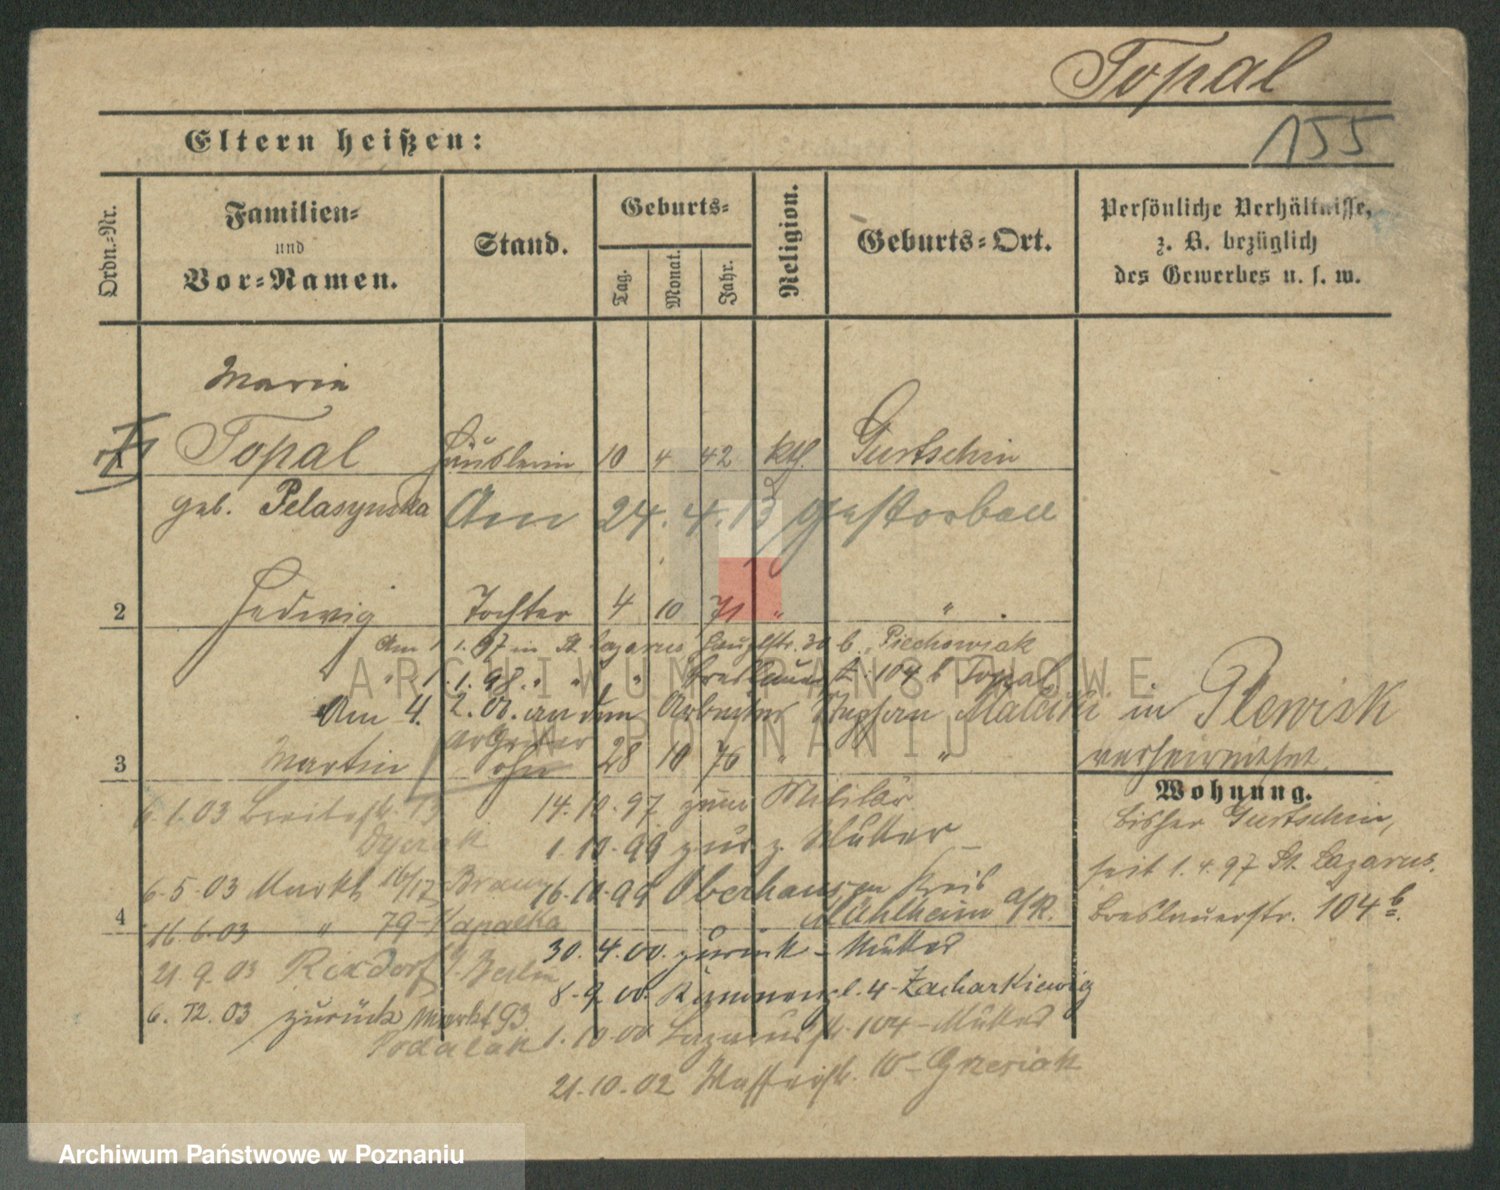 Topal
155
Eltern heißen:
Ordn.-Nr.
Familien-
und
Vor-Namen.
Stand.
Geburts-
Tag.
Monat.
Jahr.
Religion.
Geburts-Ort.
Persönliche Verhältnisse,
z. B. bezüglich
des Gewerbes u. s. w.
Maria
1 Topal Häuslerin 10 4 42 kth. Gurtschin
geb. Pelasynska Am 24. 4. 13 gestorben
2 Hedwig Tochter 4 10 71 " "
Am 1. 1. 97 in St. Lazarus Hauptstr. 30 b. Piechowiak
" 1. 1. 98. " " " Breslauerstr. 104 b Topal
Am 4. 2. 00. an den Arbeiter Stephan Malecki in Plewisk
verheirathet.
Arbeiter
3 Martin Sohn 28 10 76 " "
Wohnung.
bisher Gurtschin,
seit 1. 4. 97 St. Lazarus.
Breslauerstr. 104 b.
14. 10. 97 zum Militär
1. 10. 99 zur Mutter
16. 10. 99 Oberhausen Kreis
Mühlheim a/R.
30. 4. 00. zurück - Mutter
8. 9. 00. 4 - Zacharkiewig
1. 10. 00 Lazarusstr. 104 - Mutter
21. 10. 02 10 - Grzesiak
6. 1. 03 Breitestr. 13
6. 5. 03 Markt 16/17
4
16. 6. 03 " 79 - Kapalka
21. 9. 03 Rixdorf b. Berlin
6. 12. 03 zurück Markt 93
Podalak
ARCHIWUM PAŃSTWOWE
W POZNANIU
Archiwum Państwowe w Poznaniu